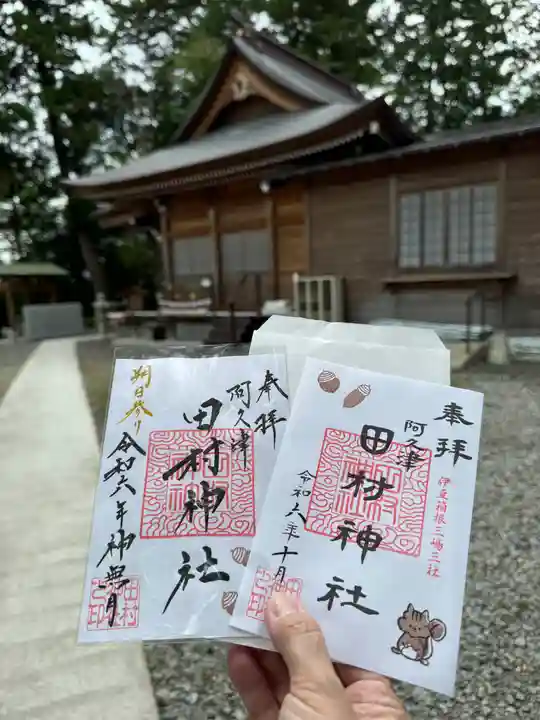 奉拝
阿久津
田村神社
朔日参り
令和六年神無月
奉拝
伊豆箱根三嶋三社
阿久津
田村神社
令和六年十月